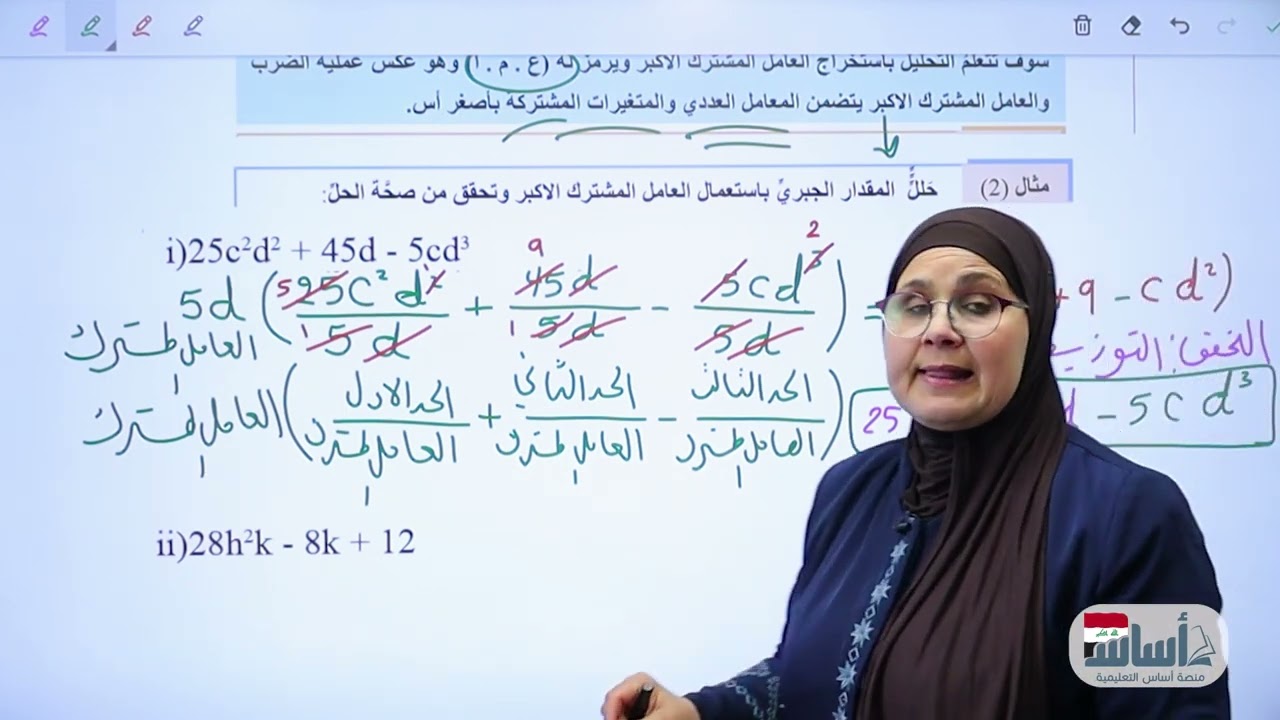 سوف نتعلم التحليل باستخراج العامل المشترك الاكبر ويرمز له (ع . م . أ) وهو عكس عملية الضرب
والعامل المشترك الاكبر يتضمن المعامل العددي والمتغيرات المشتركة بأصغر أس.
مثال (2) حَللُّ المقدار الجبريِّ باستعمال العامل المشترك الاكبر وتحقق من صحَّة الحل:
i)25c²d² + 45d - 5cd³
9 2
5d ( 5 25c² d² / 1 5 d + 45d / 1 5 d - 5cd³ / 5 d ) = + 9 - c d² )
العامل المشترك
التحقق: التوزيع
العامل المشترك ( الحد الاول / العامل المشترك + الحد الثاني / العامل المشترك - الحد الثالث / العامل المشترك )
25 d - 5 c d³
ii)28h²k - 8k + 12
أساس
منصة أساس التعليمية